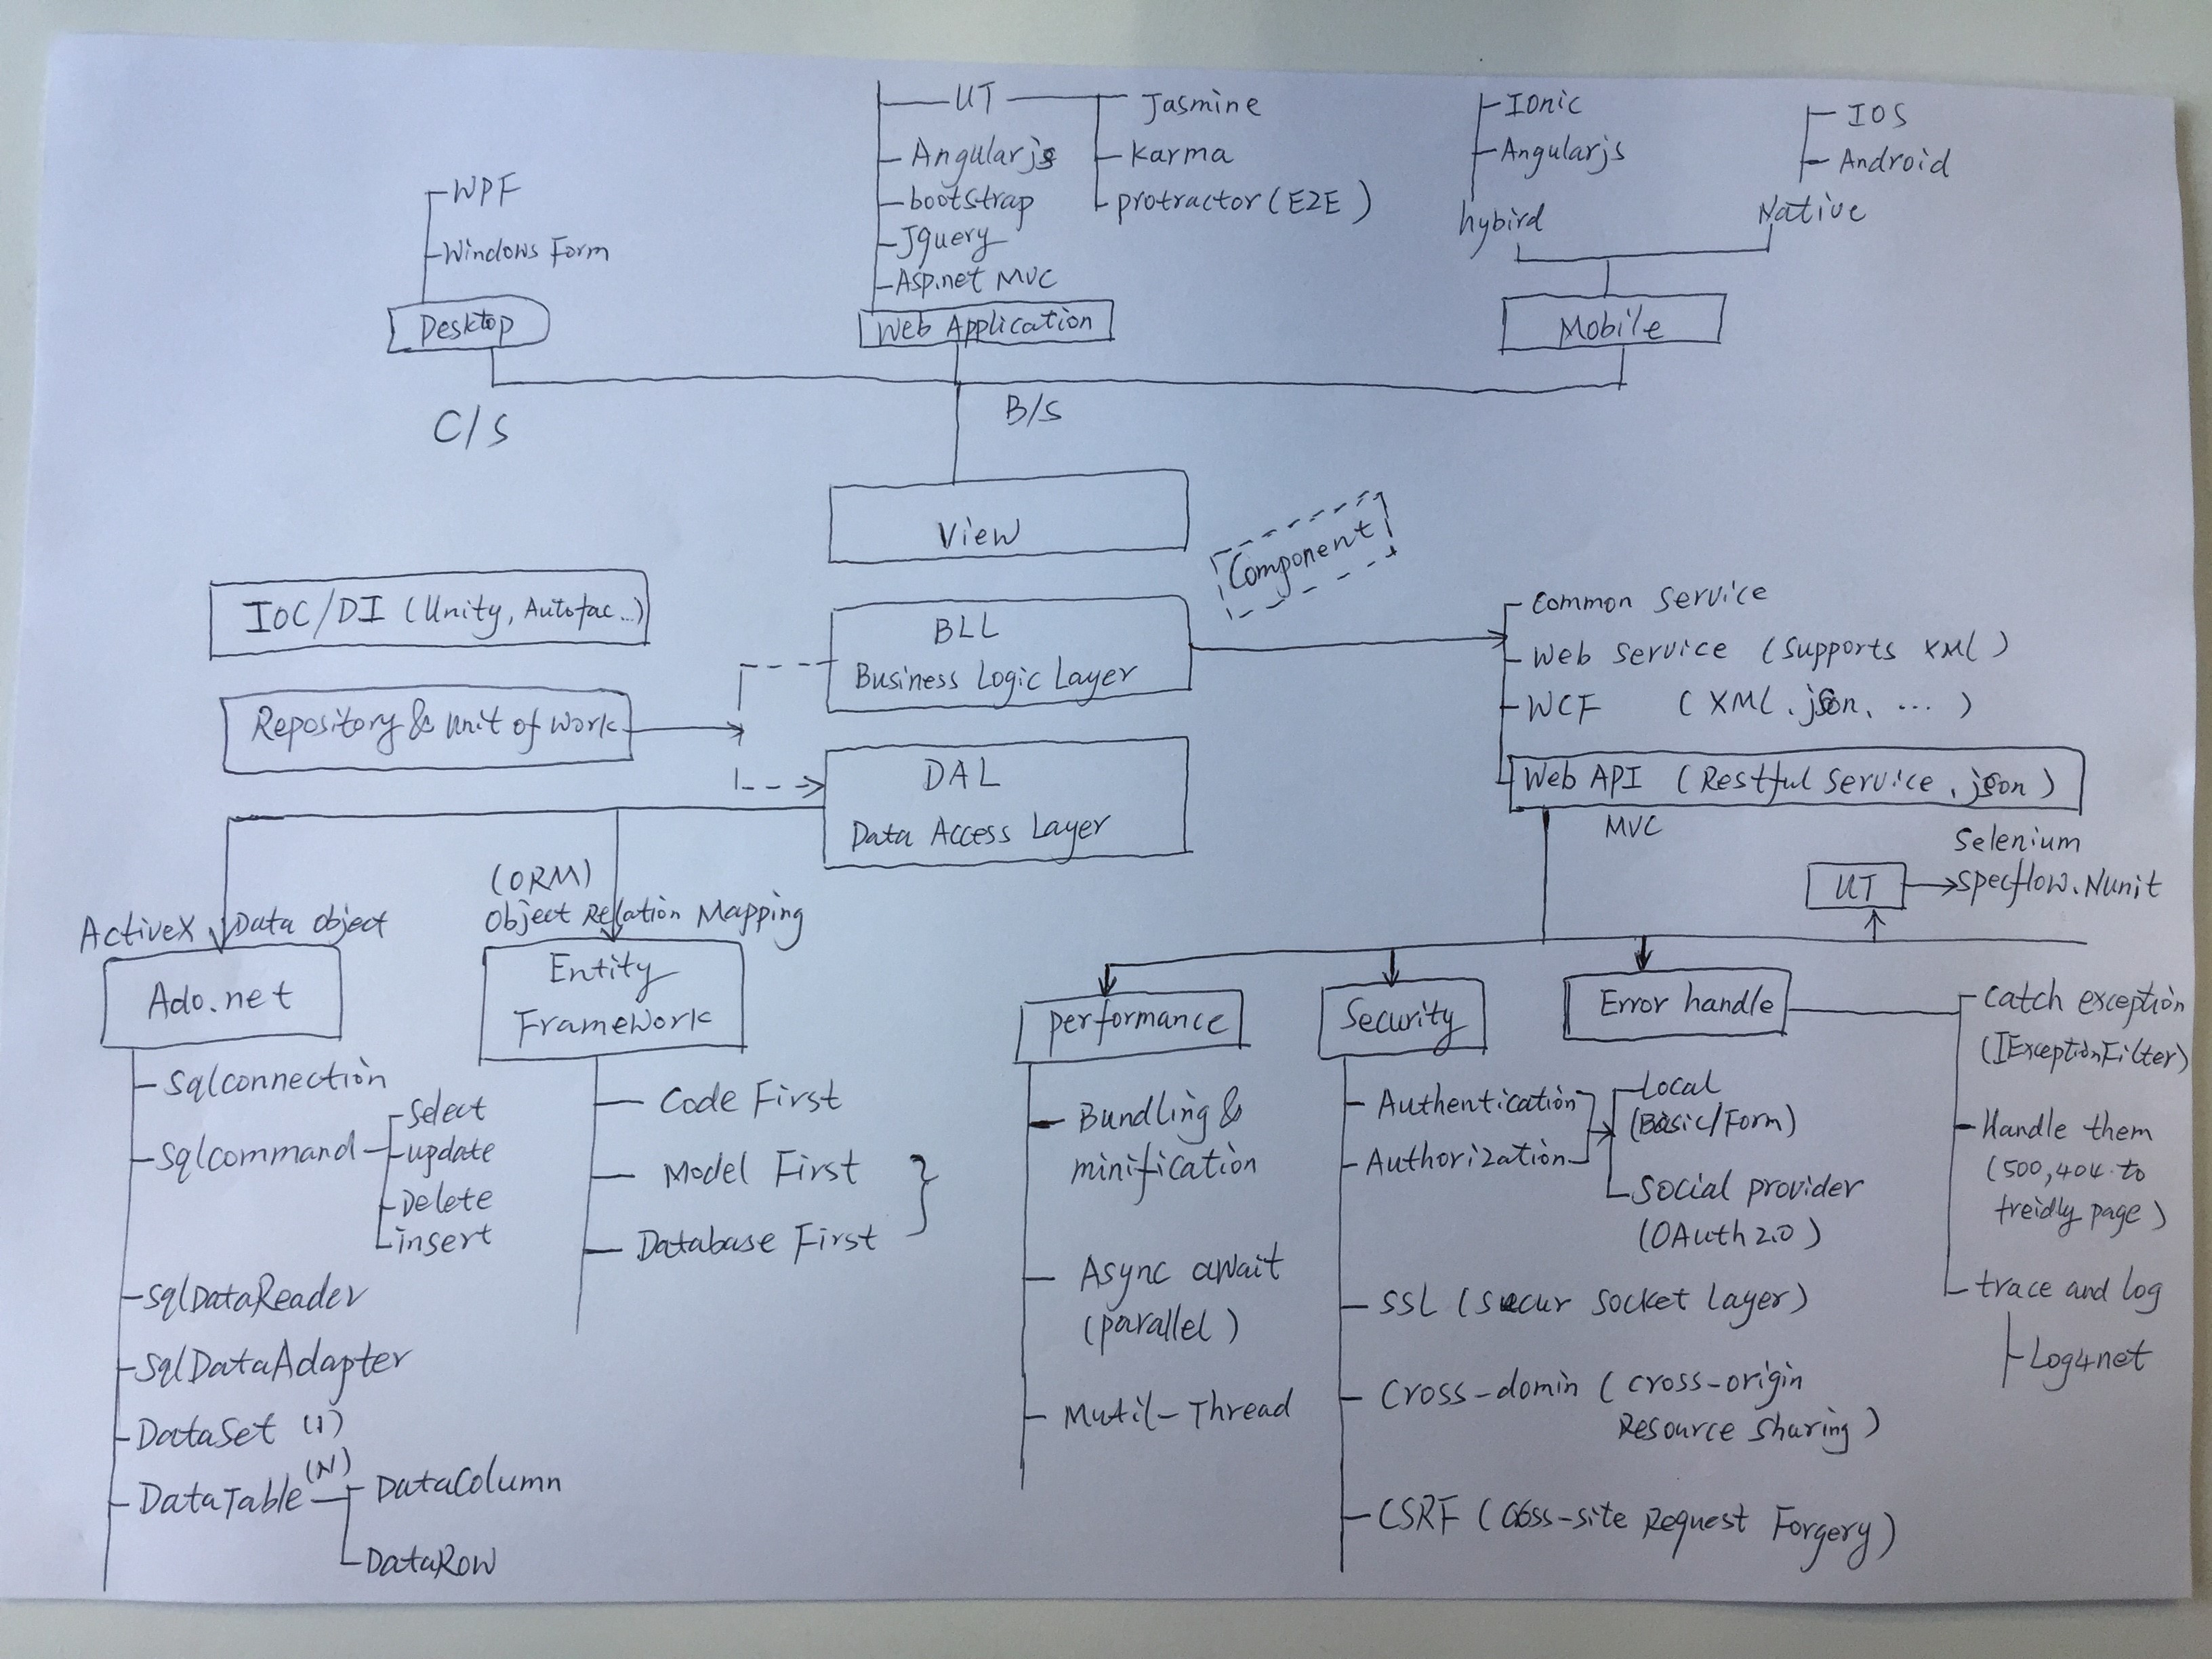 UT
Jasmine
Angularjs
Karma
bootstrap
protractor (E2E)
Jquery
Asp.net MVC
Web Application
WPF
Windows Form
Desktop
Ionic
Angularjs
hybird
IOS
Android
Native
Mobile
C/S
B/S
View
Component
IOC/DI (Unity, Autofac...)
Repository & Unit of Work
BLL
Business Logic Layer
DAL
Data Access Layer
Common Service
Web Service (Supports XML)
WCF (XML, json, ...)
Web API (Restful Service, json)
MVC
UT
Selenium
Specflow.Nunit
ActiveX Data object
Ado.net
Sqlconnection
Sqlcommand
Select
update
Delete
insert
SqlDataReader
SqlDataAdapter
DataSet (1)
DataTable (N)
DataColumn
DataRow
(ORM)
Object Relation Mapping
Entity
Framework
Code First
Model First
Database First
performance
Bundling &
minification
Async await
(parallel)
Mutil-Thread
Security
Authentication
Authorization
Local
(Basic/Form)
Social provider
(OAuth 2.0)
SSL (Secur Socket Layer)
Cross-domin (cross-origin
Resource Sharing)
CSRF (Cross-site Request Forgery)
Error handle
Catch exception
(IExceptionFilter)
Handle them
(500, 404 to
freidly page)
trace and log
Log4net